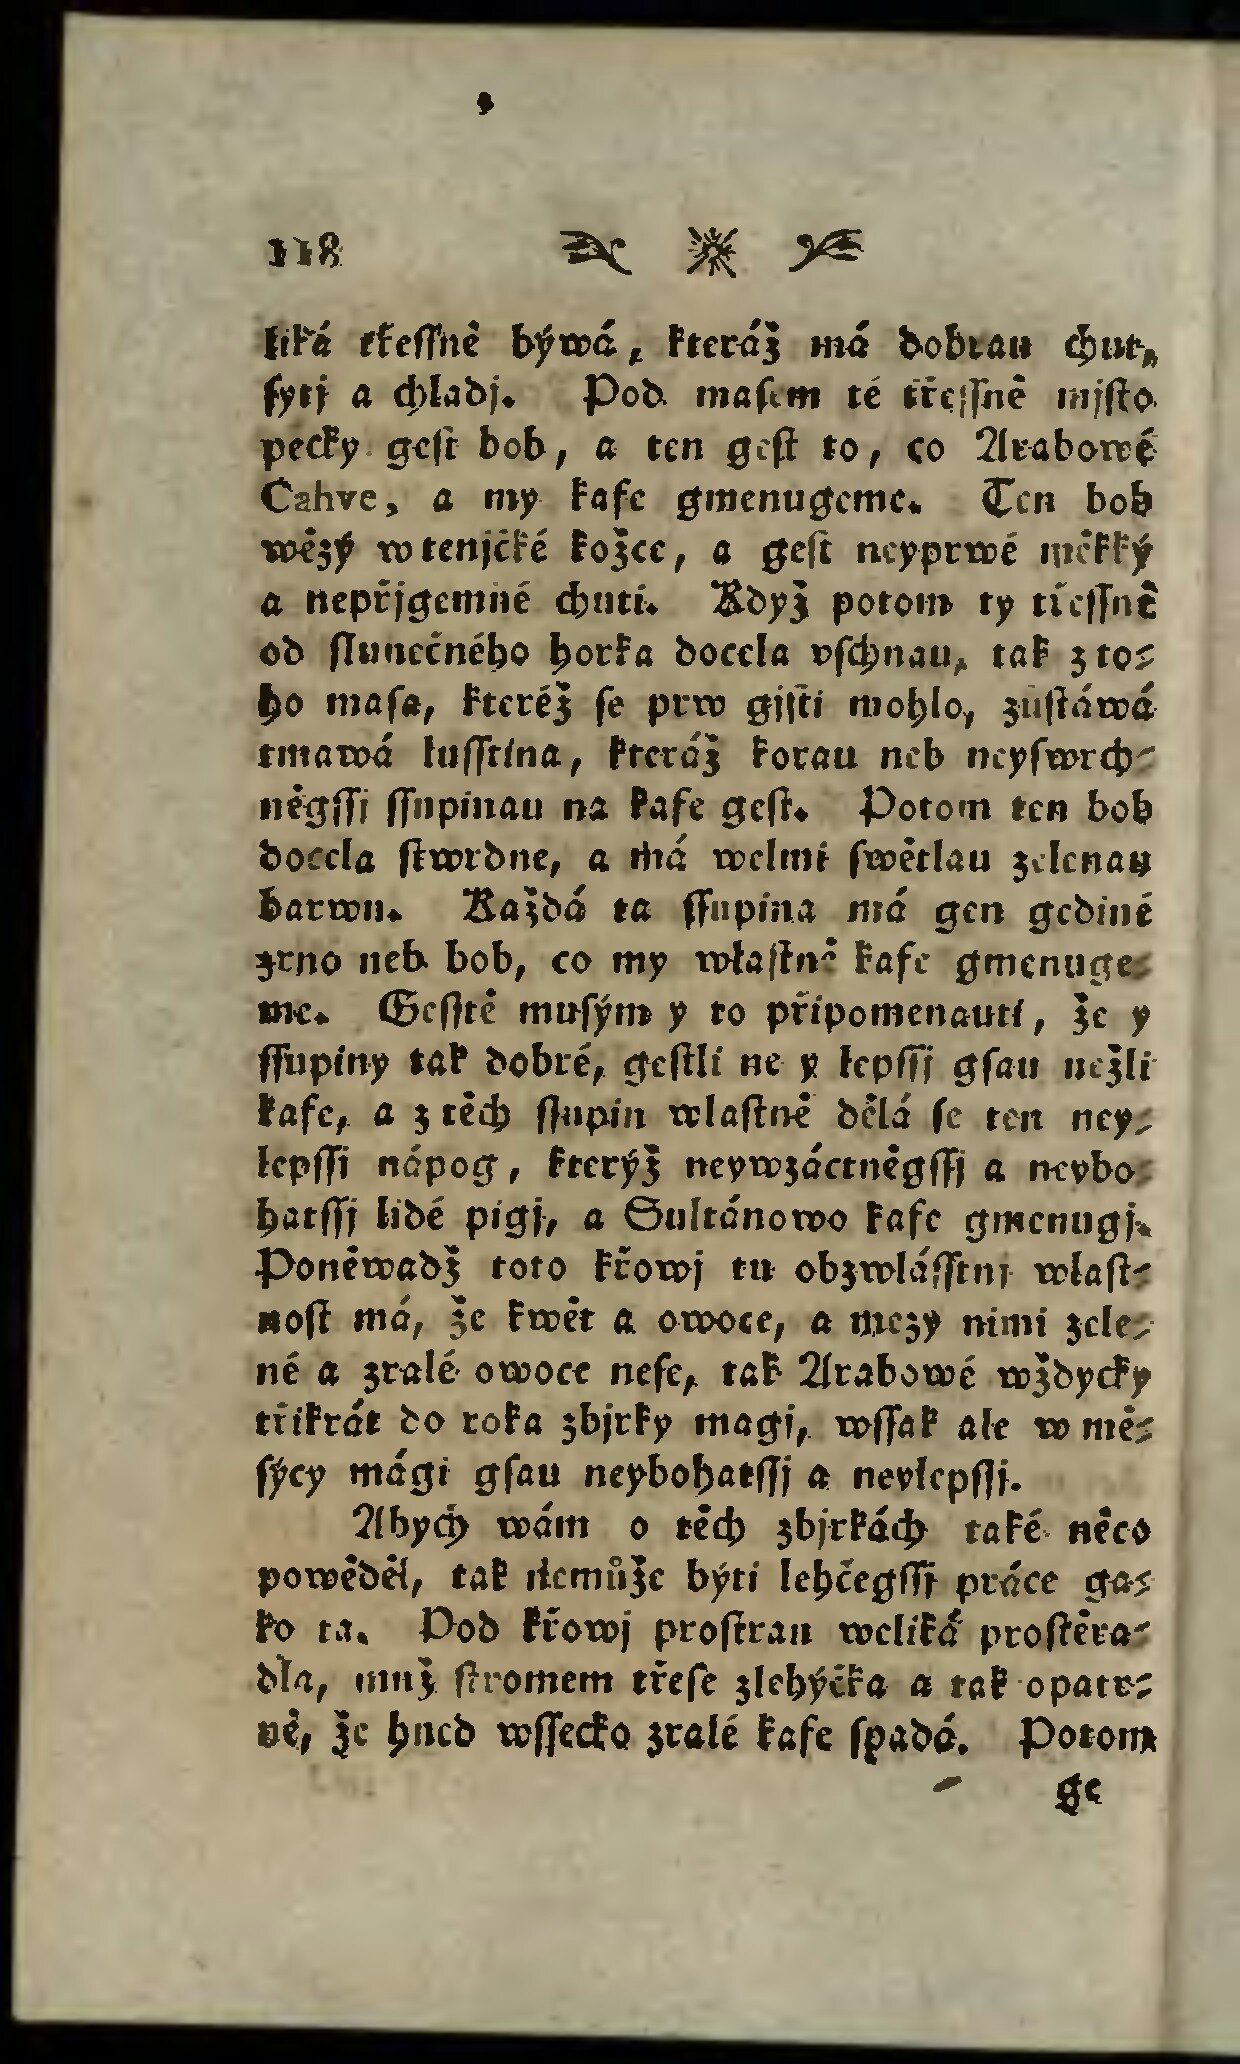 118
liká třessně býwá, kteráž má dobrau chut,
sytj a chladj. Pod masem té třessně mjsto
pecky gest bob, a ten gest to, co Arabowé
Cahve, a my kafe gmenugeme. Ten bob
wězý w tenjčké kožce, a gest neyprwé měkký
a nepřjgemné chuti. Když potom ty třessně
od slunečného horka docela vschnau, tak z to⸗
ho masa, kteréž se prw gjsti mohlo, zůstáwá
tmawá lusstina, kteráž korau neb neyswrch⸗
něgssj ssupinau na kafe gest. Potom ten bob
docela stwrdne, a má welmi swětlau zelenau
barwu. Každá ta ssupina má gen gediné
zrno neb bob, co my wlastně kafe gmenuge⸗
me. Gesstě musým y to připomenauti, že y
ssupiny tak dobré, gestli ne y lepssj gsau nežli
kafe, a z těch ssupin wlastně dělá se ten ney⸗
lepssi nápog, kterýž neywzáctněgssj a neybo⸗
hatssj lidé pigj, a Sultánowo kafe gmenugj.
Poněwadž toto křowj tu obzwlásstnj wlast⸗
nost má, že kwět a owoce, a mezy nimi zele⸗
né a zralé owoce nese, tak Arabowé wždycky
třikrát do roka zbjrky magj, wssak ale w mě⸗
sýcy mági gsau neybohatssj a neylepssj.
Abych wám o těch zbjrkách také něco
powěděl, tak nemůže býti lehčegssj práce ga⸗
ko ta. Pod křowj prostrau weliká prostěra⸗
dla, muž stromem třese zlehýčka a tak opatr⸗
ně, že hned wssecko zralé kafe spadá. Potom
ge